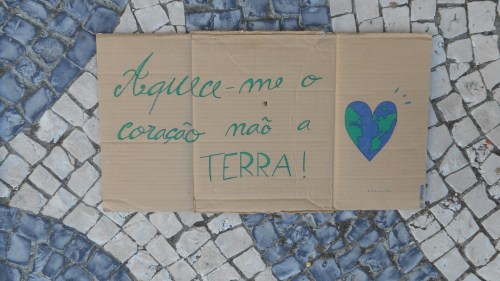 Aquece-me o
coração naõ a
TERRA!